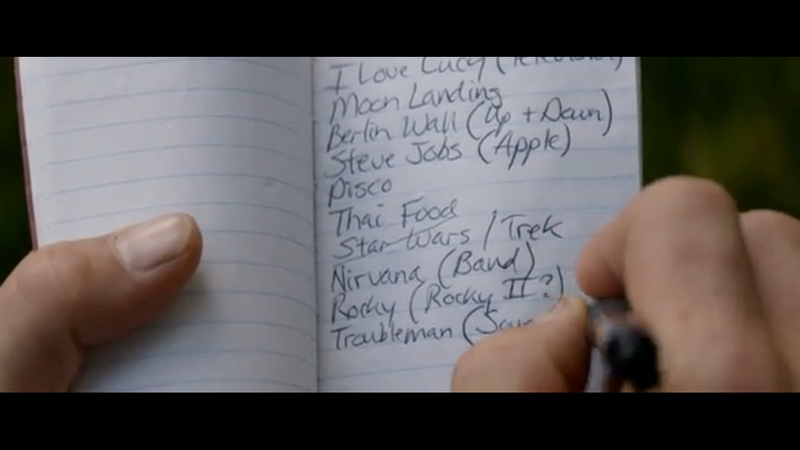 I Love Lucy (Television)
Moon Landing
Berlin Wall (Up + Down)
Steve Jobs (Apple)
Disco
Thai Food
Star Wars / Trek
Nirvana (Band)
Rocky (Rocky II?)
Troubleman (